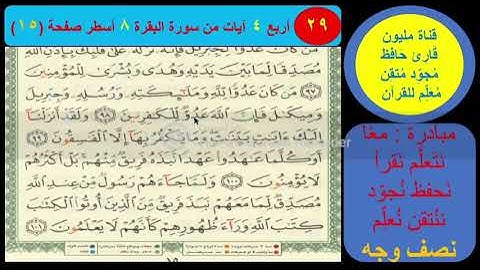 ٢٩
أربع ٤ آيات من سورة البقرة ٨ أسطر صفحة (١٥)
قناة مليون
قارئ حافظ
مُجوّد مُتقن
مُعلِم للقرآن
مبادرة : معًا
نتعلّم نقرأ
نحفظ نُجوّد
نتُتقن نُعلّم
نصف وجه
مَن كَانَ عَدُوًّا لِّجِبْرِيلَ فَإِنَّهُۥ نَزَّلَهُۥ عَلَىٰ قَلْبِكَ بِإِذْنِ ٱللَّهِ
مُصَدِّقًا لِّمَا بَيْنَ يَدَيْهِ وَهُدًى وَبُشْرَىٰ لِلْمُؤْمِنِينَ
٩٧ مَن كَانَ عَدُوًّا لِّلَّهِ وَمَلَٰٓئِكَتِهِۦ وَرُسُلِهِۦ وَجِبْرِيلَ
وَمِيكَىٰلَ فَإِنَّ ٱللَّهَ عَدُوٌّ لِّلْكَٰفِرِينَ ٩٨ وَلَقَدْ أَنزَلْنَآ
إِلَيْكَ ءَايَٰتٍۭ بَيِّنَٰتٍ وَمَا يَكْفُرُ بِهَآ إِلَّا ٱلْفَٰسِقُونَ ٩٩
أَوَكُلَّمَا عَٰهَدُوا۟ عَهْدًا نَّبَذَهُۥ فَرِيقٌ مِّنْهُم بَلْ أَكْثَرُهُمْ
لَا يُؤْمِنُونَ ١٠٠ وَلَمَّا جَآءَهُمْ رَسُولٌ مِّنْ عِندِ ٱللَّهِ
مُصَدِّقٌ لِّمَا مَعَهُمْ نَبَذَ فَرِيقٌ مِّنَ ٱلَّذِينَ أُوتُوا۟ ٱلْكِتَٰبَ
كِتَٰبَ ٱللَّهِ وَرَآءَ ظُهُورِهِمْ كَأَنَّهُمْ لَا يَعْلَمُونَ ١٠١